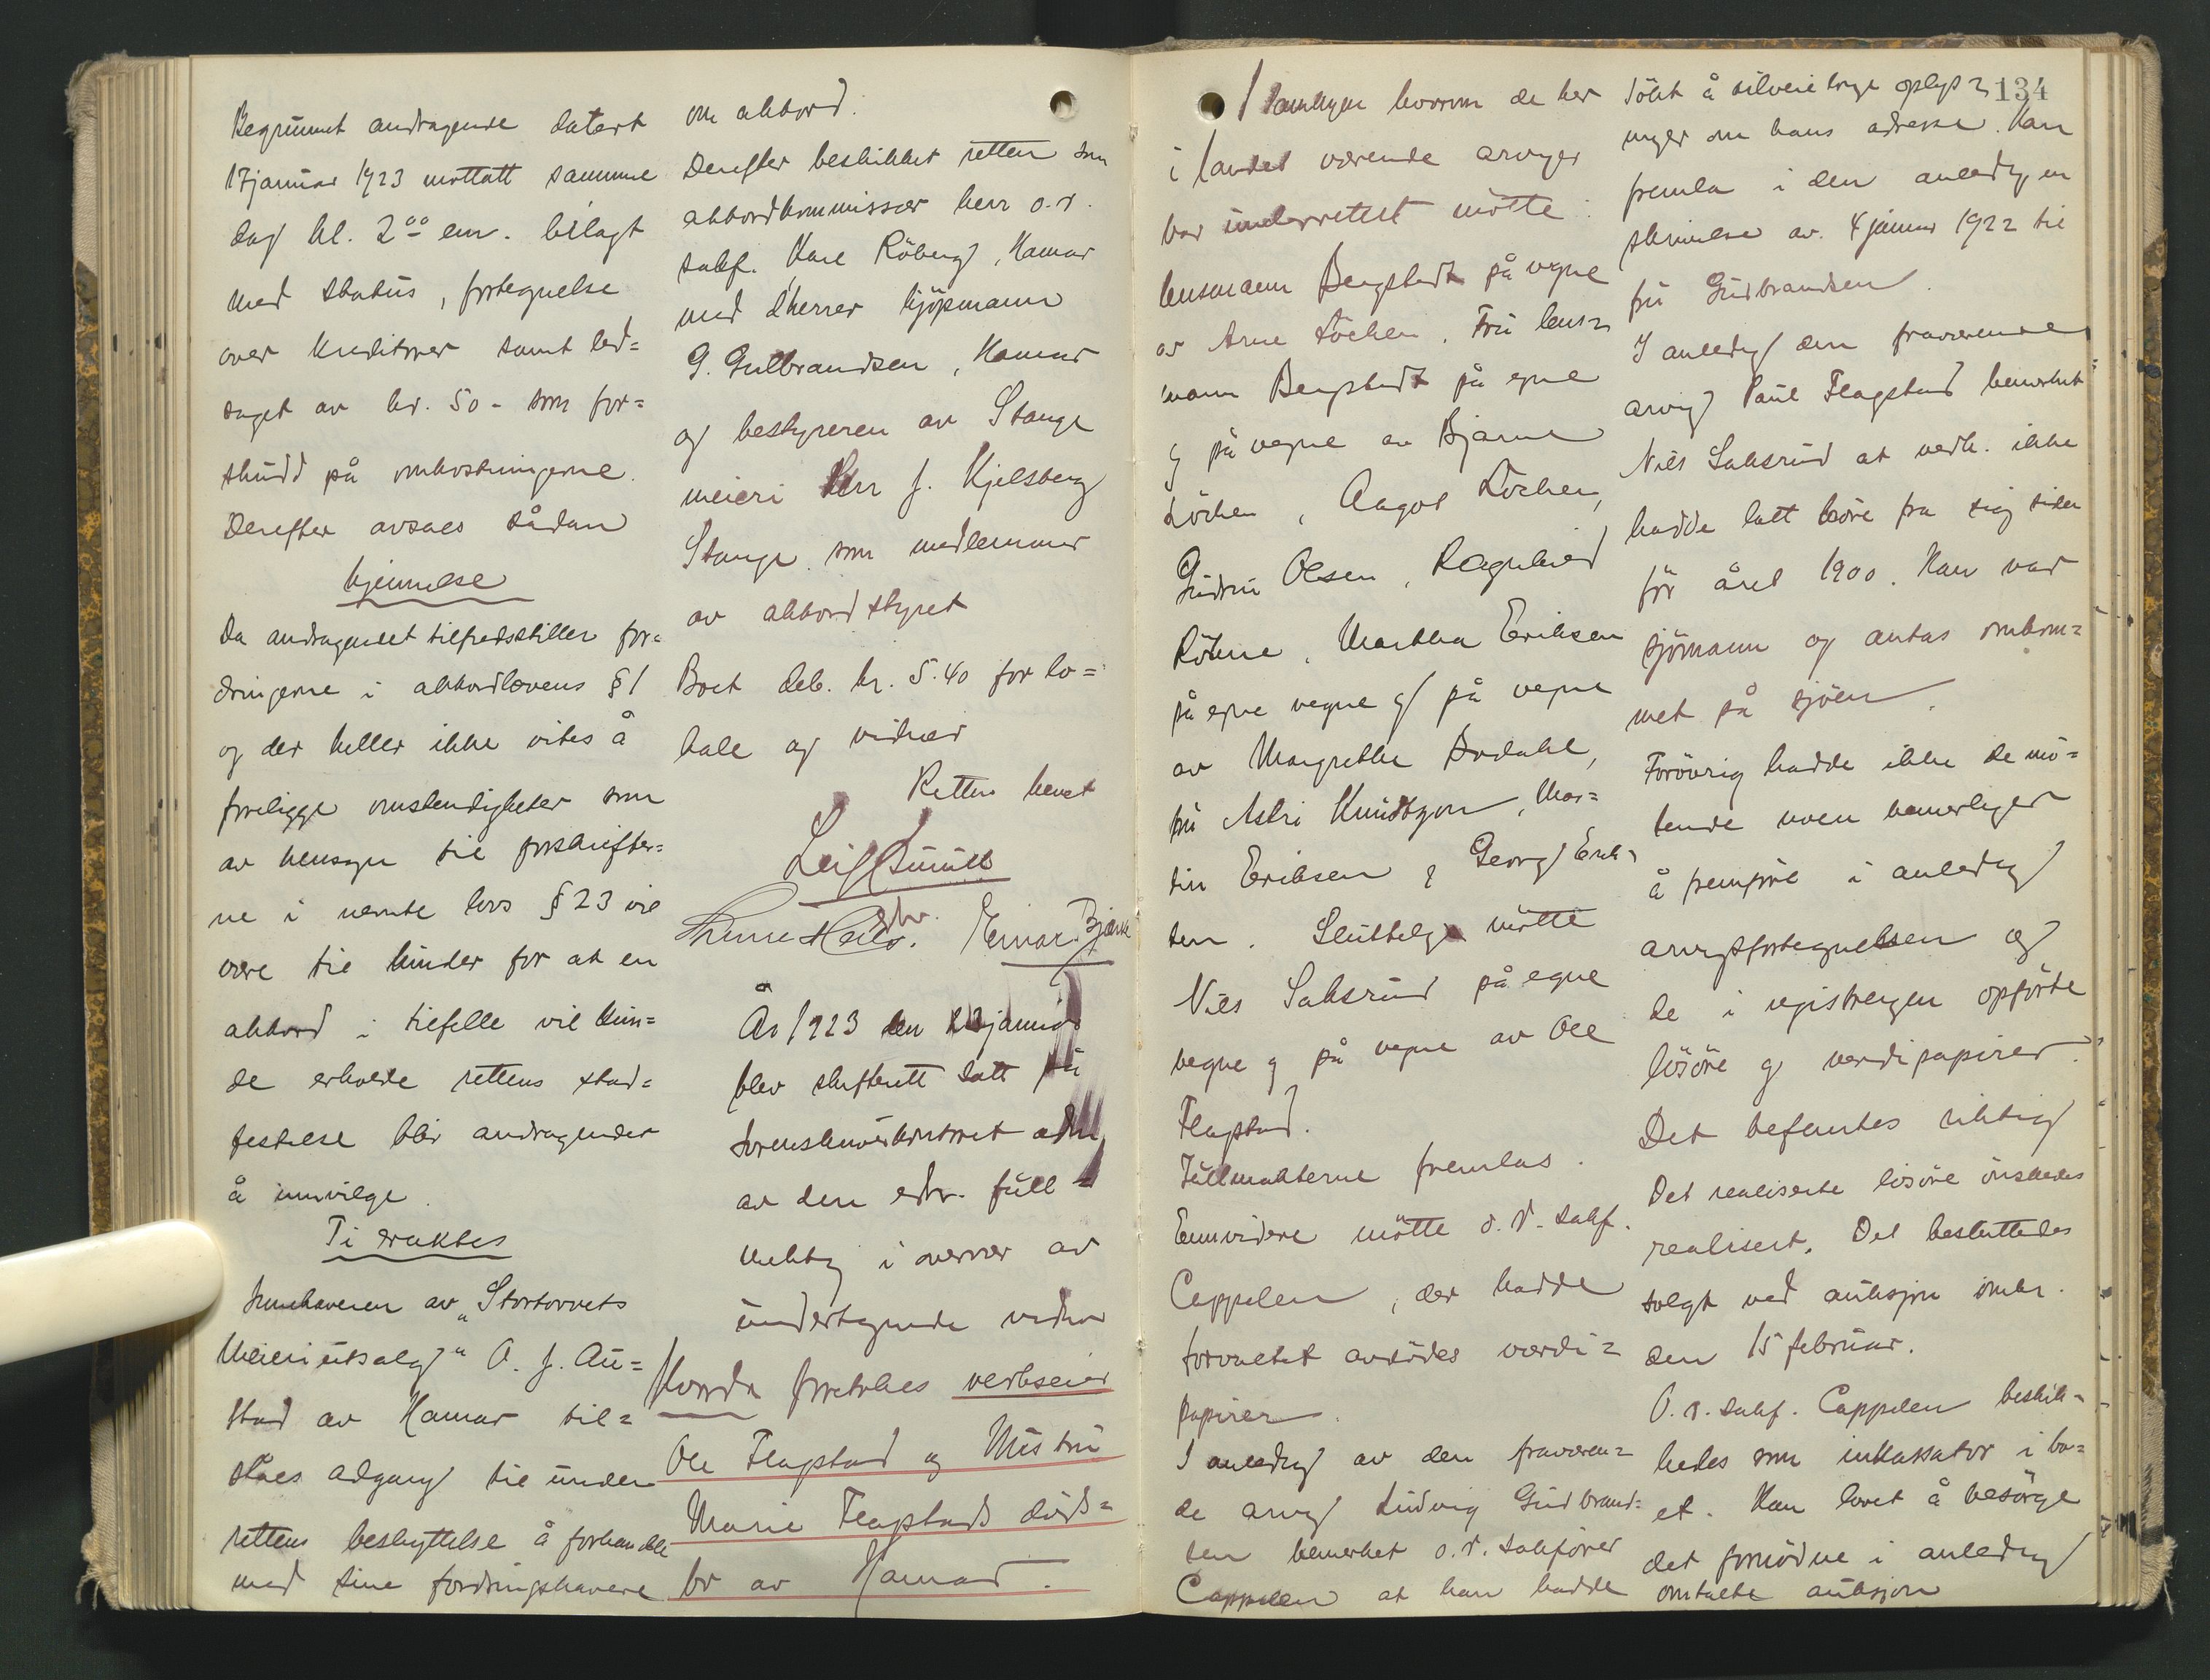 Begrunnet andragende datert
17 januar 1923 mottatt samme
dag kl. 2⁰⁰ em. bilagt
med status, fortegnelse
over kreditorer samt led=
saget av kr. 50 - som for=
skudd på omkostningerne.
Derefter avsaes sådan
kjennelse
Da andragendet tilfredsstiller for=
dringerne i akkordlovens § 1
og der heller ikke vites å
foreligge omstendigheter som
av hensyn til forskrifter=
ne i nevnte lovs § 23 vil
være til hinder for at en
akkord i tilfelle vil kun=
de erholde rettens stad=
festelse blir andragendet
å innvilge.
Ti eraktes
Innehaveren av "Stortorvets
Meieriutsalg" A. J. Au=
stad av Hamar til=
ståes adgang til under
rettens beskyttelse å forhandle
med sine fordringshavere
om akkord.
Derefter beskikket retten som
akkordkommissær herr o.r.
sakf. Kåre Röberg, Hamar
med d'herrer kjöpmann
G. Gulbrandsen, Hamar
og bestyreren av Stange
meieri herr J. Kjelsberg
Stange som medlemmer
av akkordstyret
Boet deb. kr. 5.40 for lo=
kale og vidner
Retten hevet
Leif Smith
edv.
Einar Bjerke
År 1923 den 23 januar
blev skifterett satt på
sorenskriverkontoret adm.
av den edv. full=
mektig i overvær av
undertegnede vidner
Hvorda foretokes verkseier
Ole Flagstad og Hustru
Marie Flagstads döds=
bo av Hamar.
134
I samlingen hvorom de her
i landet værende arvinger
var underrettet mötte:
lensmann Bergstedt på vegne
av Arne Löchen, Fru lens=
mann Bergstedt på egne
og på vegne av Bjarne
Löchen, Aagot Löchen,
Gudrun Olsen, Ragnhild
Röhne, Martha Eriksen
på egne vegne og på vegne
av Margrethe Dodahl,
fru Astri Knudtzon, Mar=
tin Eriksen og Georg Erik=
sen. Sluttelig mötte
Nils Saksrud på egne
vegne og på vegne av Ole
Flagstad.
Fullmakterne fremlas.
Ennvidere mötte o.r. sakf.
Cappelen, der hadde
forvaltet avdödes verdi=
papirer.
I anledng av den fraværen=
de arving Ludvig Gudbrand=
sen bemerket o.r. sakförer
Cappelen at han hadde
sökt å tilveiebringe oplys=
inger om hans adresse. Han
fremla i den anledng en
skrivelse av 4 januar 1922 til
fru Gudbrandsen.
I anledng den fraværende
arving Paul Flagstad bemerket
Nils Saksrud at vedk. ikke
hadde latt höre fra sig siden
för året 1900. Han var
sjömann og antas omkom=
met på sjöen.
Forövrig hadde ikke de mö=
tende noen bemerkninger
å fremföre i anledng
arvingsfortegnelsen og
de i registreringen opförte
lösöre og verdipapirer.
Det befantes riktig
Det realiserte lösöre önskedes
realisert. Det besluttedes
solgt ved auksjon omkr.
den 15 februar.
O.r. sakf. Cappelen beskik=
kedes som inkassator i bo=
et. Han lovet å besörge
det fornödne i anledng
omtalte auksjon